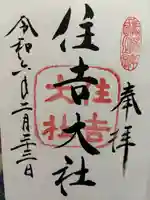 奉拝
住吉大社
令和六年二月二十三日
住吉
大社